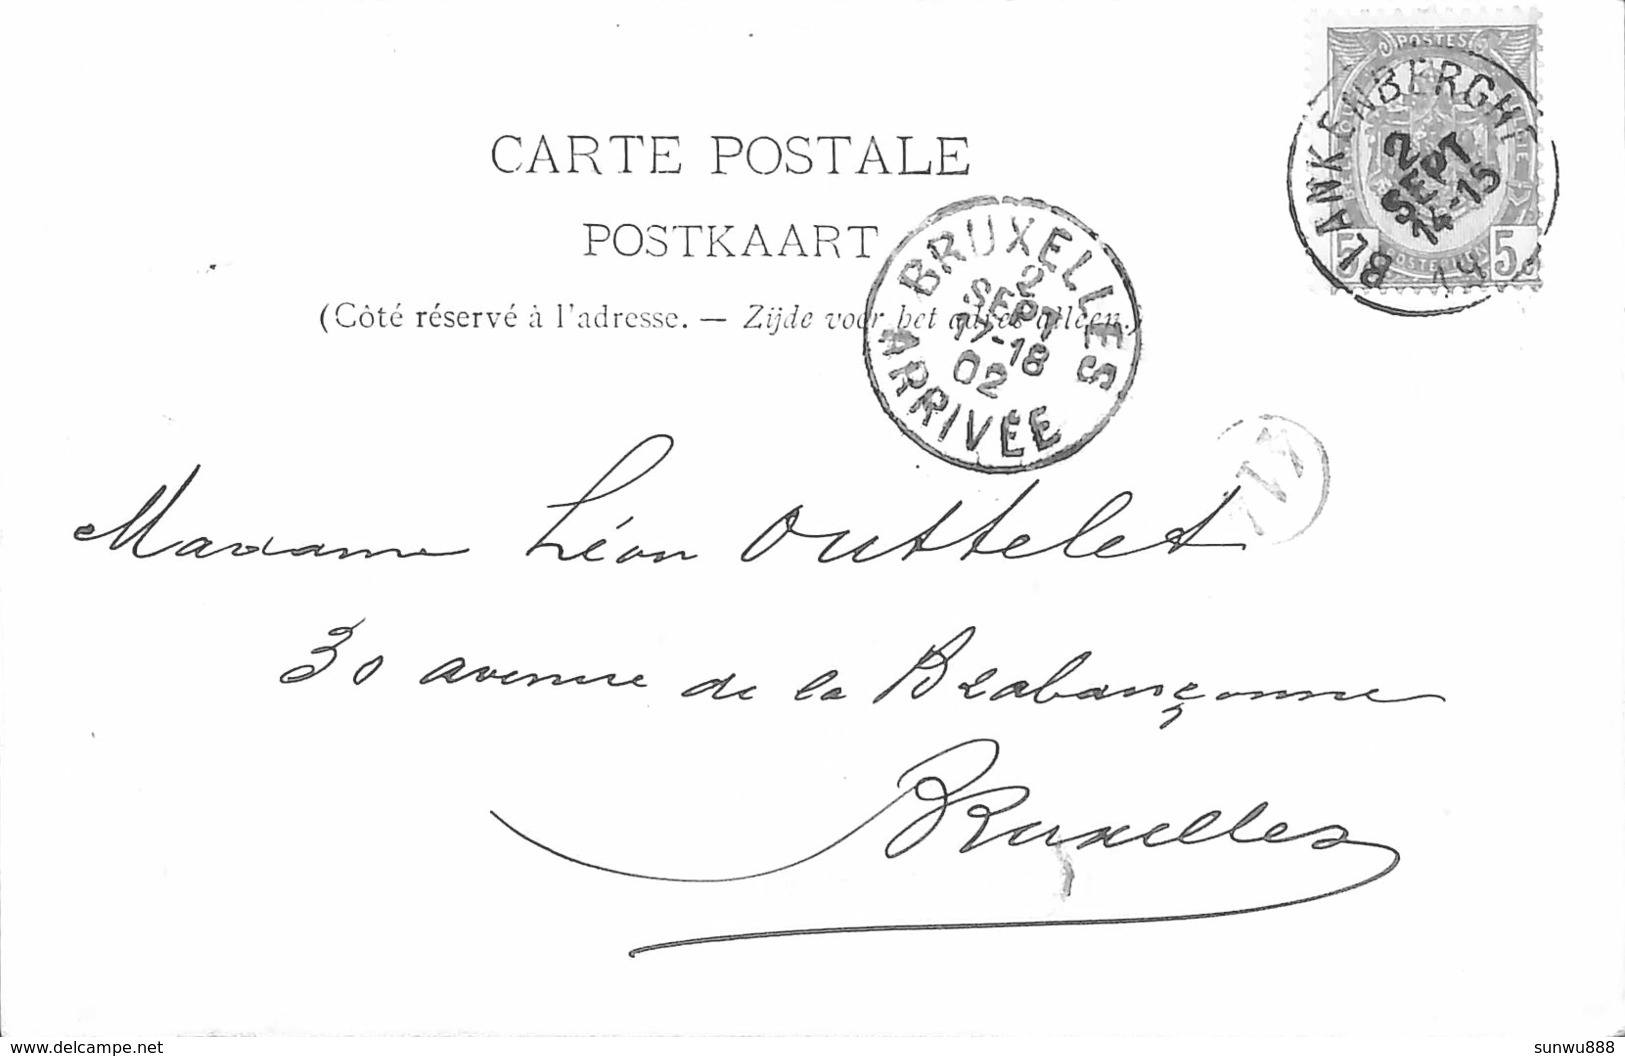 POSTES
BLANKENBERGHE
2
SEPT
14-15
5
5
CARTE POSTALE
POSTKAART
(Côté réservé à l'adresse. — Zijde voor het adres alleen.)
BRUXELLES
2
SEPT
17-18
02
ARRIVÉE
Madame Léon Outtelet
30 avenue de la Brabançonne
Bruxelles
www.delcampe.net
sunwu888